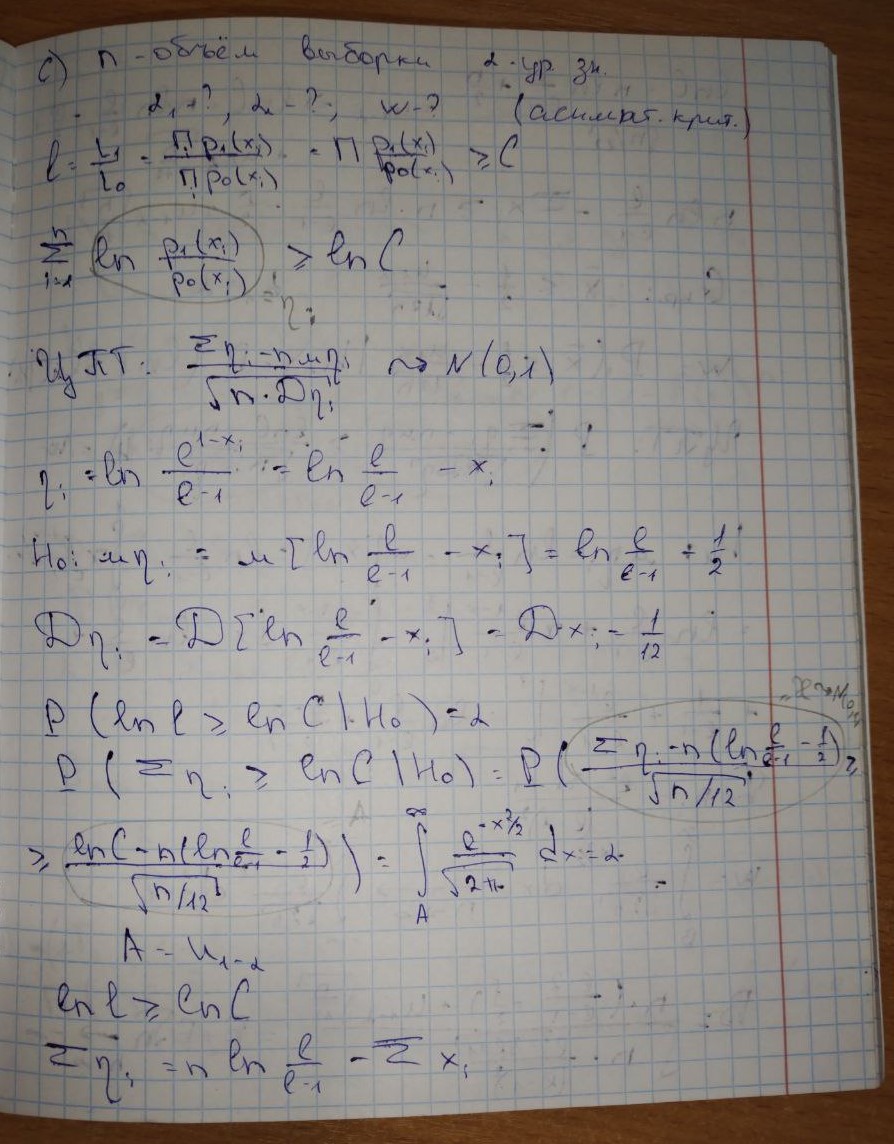 c) n - объём выборки α - ур. зн.
α₁ - ?, α₂ - ?; W - ? (асимпт. крит.)
l = L₁/L₀ = ∏ p₁(xᵢ) / ∏ p₀(xᵢ) = ∏ p₁(xᵢ)/p₀(xᵢ) ≥ C
∑ᵢ₌₁ⁿ ln p₁(xᵢ)/p₀(xᵢ) ≥ ln C
= ηᵢ
ЦПТ: (∑ηᵢ - n мηᵢ)/√(n · Dηᵢ) ⤳ N(0,1)
ηᵢ = ln e^(1-xᵢ)/(e-1) = ln e/(e-1) - xᵢ
H₀: мηᵢ = м[ln e/(e-1) - xᵢ] = ln e/(e-1) - 1/2
Dηᵢ = D[ln e/(e-1) - xᵢ] = Dxᵢ = 1/12
P(ln l ≥ ln C | H₀) = α
P(∑ηᵢ ≥ ln C | H₀) = P((∑ηᵢ - n(ln e/(e-1) - 1/2))/√(n/12) ≥
≥ (ln C - n(ln e/(e-1) - 1/2))/√(n/12)) = ∫_A^∞ e^(-x²/2)/√(2π) dx = α
A = u₁₋α
ln l ≥ ln C
∑ηᵢ = n ln e/(e-1) - ∑xᵢ